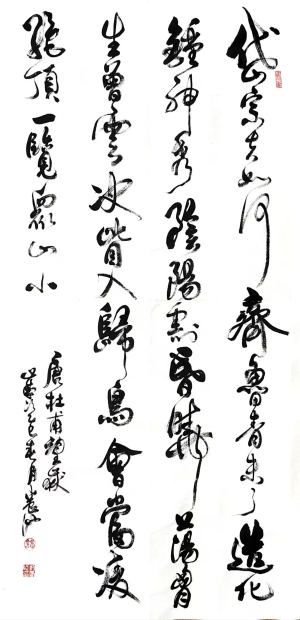 岱宗夫如何齊魯青未了造化
鍾神秀陰陽割昏曉蕩胸
生曾雲決眥入歸鳥會當凌
絕頂一覽眾山小
唐杜甫望嶽
春月